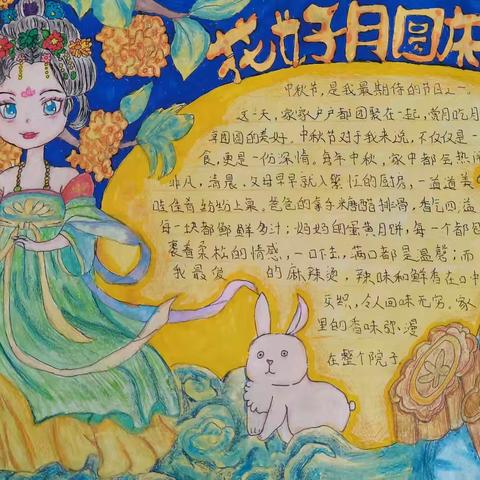 花好月圆
中秋节，是我最期待的节日之一。
这一天，家家户户都团聚在一起，赏月吃月
团圆的美好。中秋节对于我来说，不仅仅是一
食，更是一份深情。每年中秋，家中都会热闹
非凡，清晨，父母早早就入繁忙的厨房，一道道美
味佳肴纷纷上桌。爸爸的拿手糖醋排骨，香气四溢
每一块都鲜多汁；妈妈的蛋黄月饼，每一个都包
裹着柔软的情感，一口下去，满口都是温馨；而
我最爱的麻辣烫，辣味和鲜香在口中
交织，令人回味无穷。家
里的香味弥漫
在整个院子